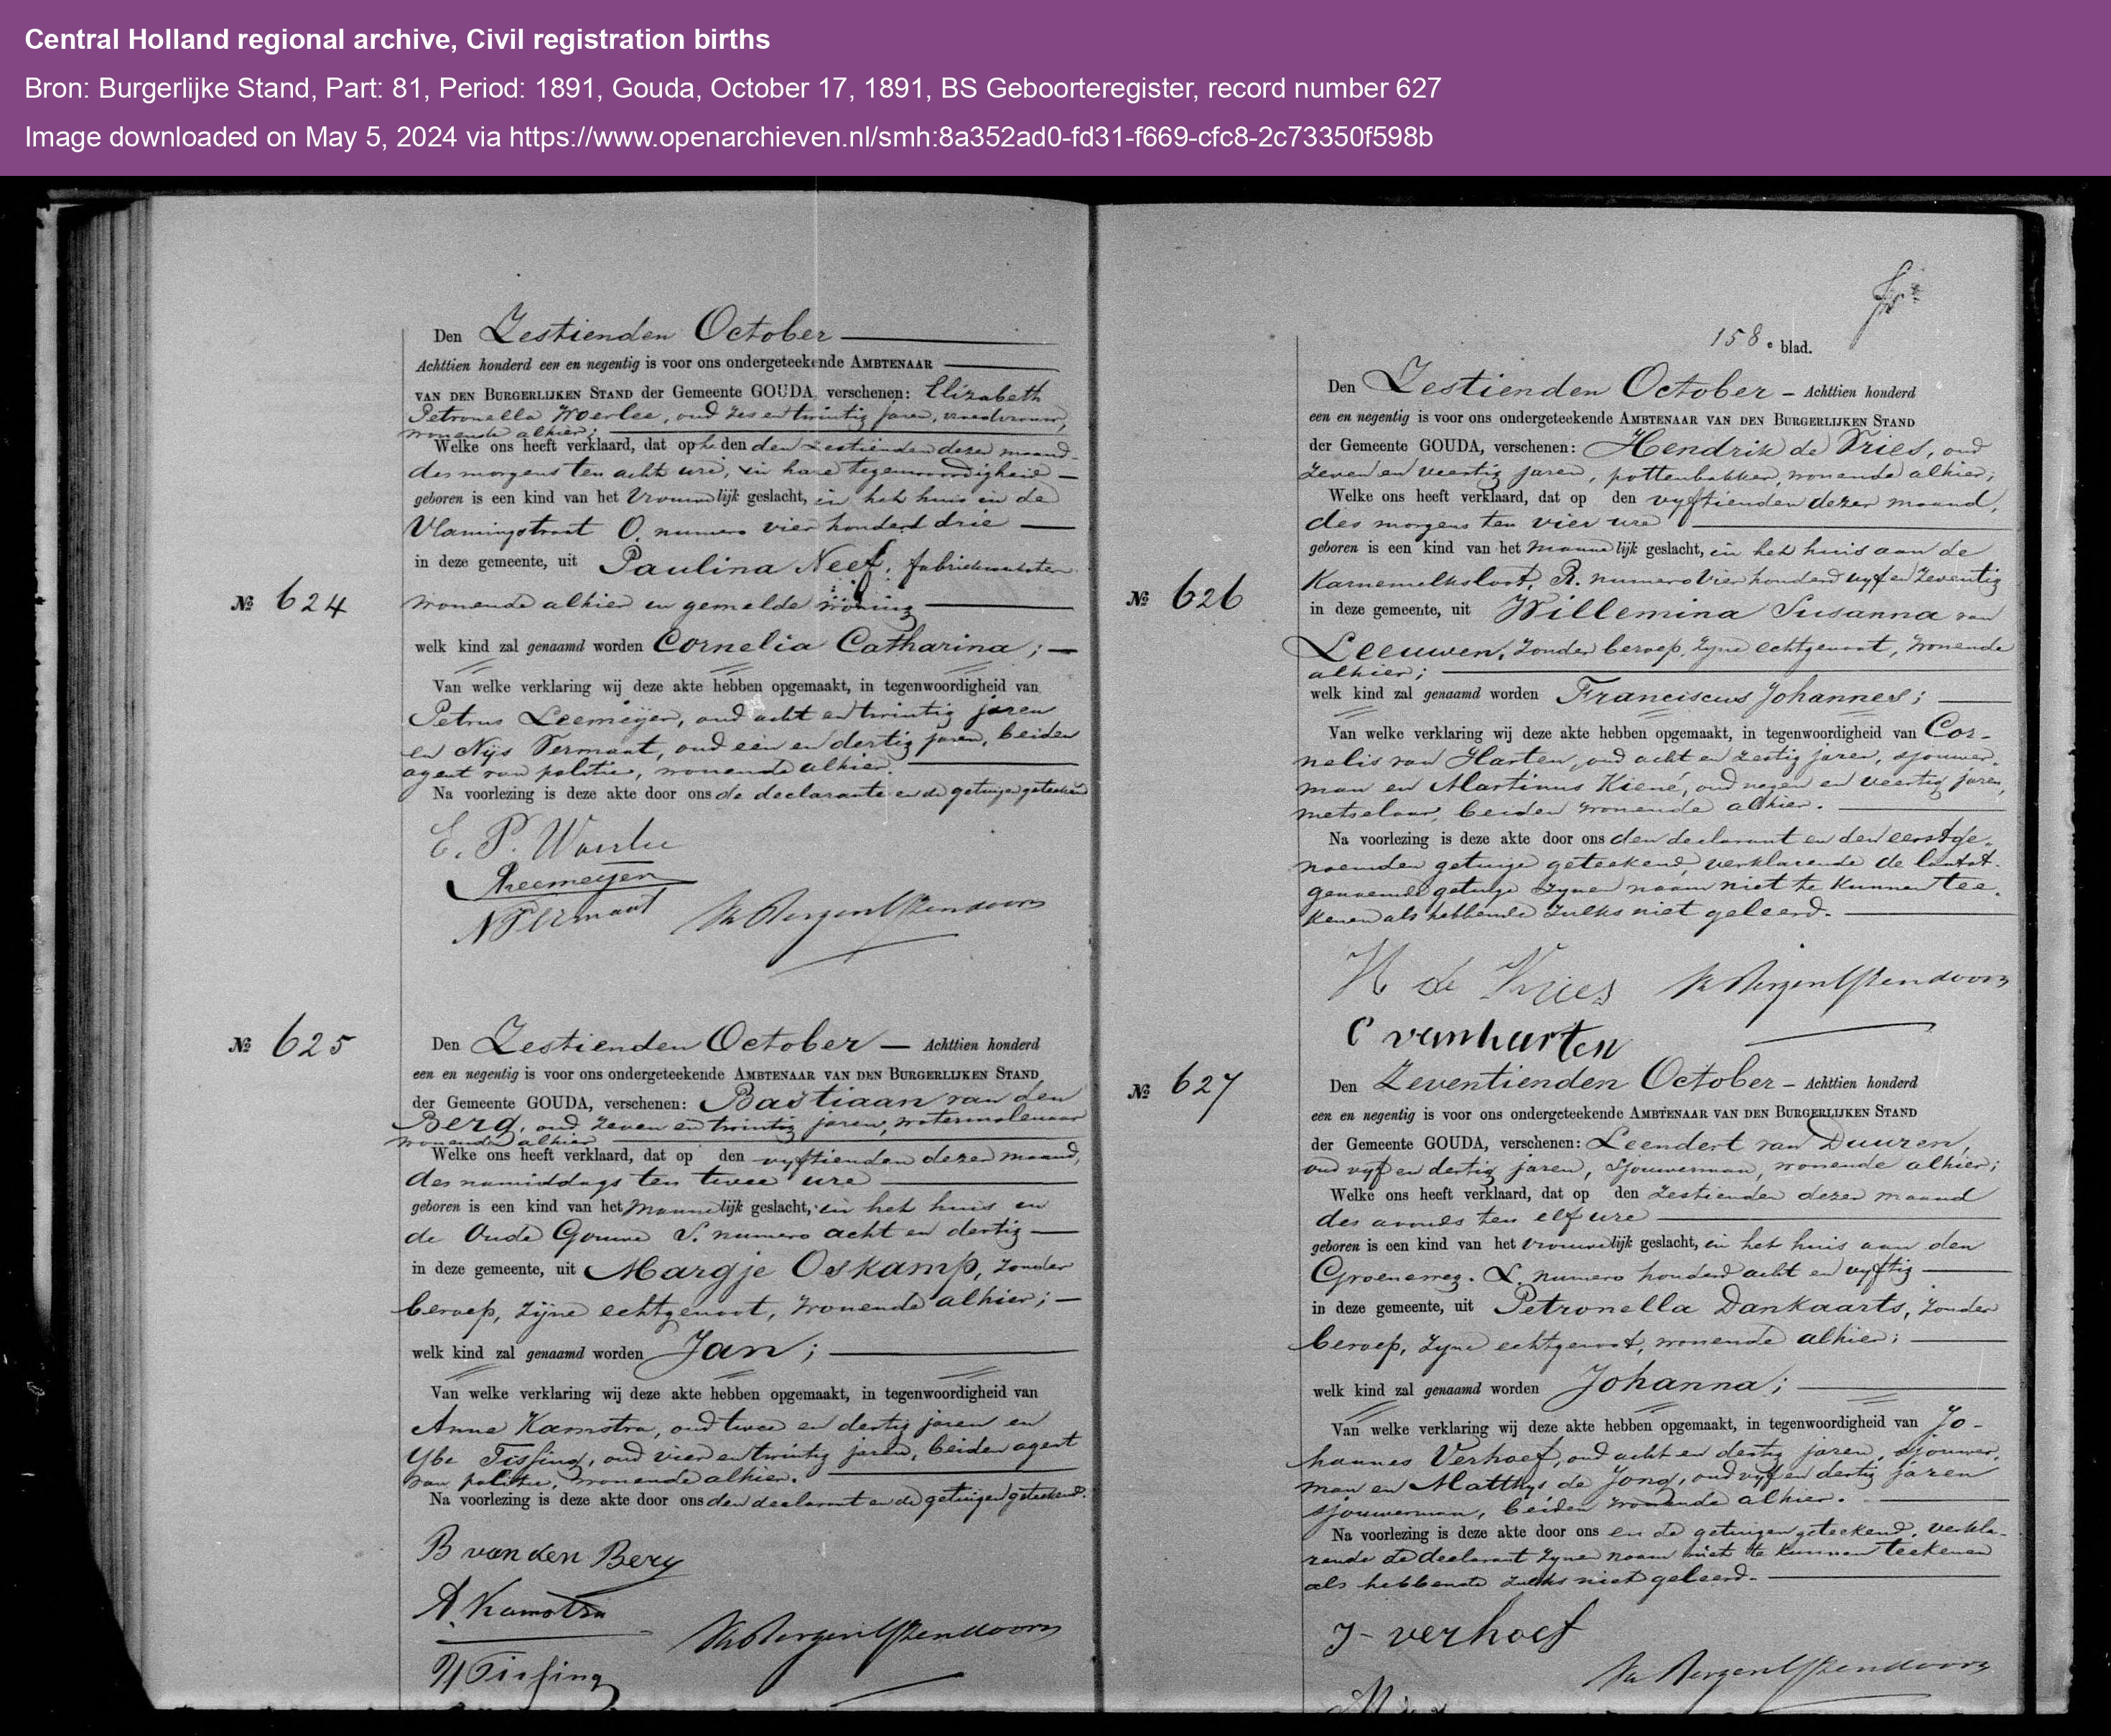 Central Holland regional archive, Civil registration births
Bron: Burgerlijke Stand, Part: 81, Period: 1891, Gouda, October 17, 1891, BS Geboorteregister, record number 627
Image downloaded on May 5, 2024 via https://www.openarchieven.nl/smh:8a352ad0-fd31-f669-cfc8-2c73350f598b
Den Zestienden October
Achttien honderd een en negentig is voor ons ondergeteekende AMBTENAAR
VAN DEN BURGERLIJKEN STAND der Gemeente GOUDA, verschenen: Elizabeth
Petronella Woerlee, oud zes en twintig jaren, vroedvrouw,
wonende alhier;
Welke ons heeft verklaard, dat op den den zestienden dezer maand
des morgens ten acht ure, in hare tegenwoordigheid
geboren is een kind van het Vrouwelijk geslacht, in het huis in de
Vlamingstraat O. numero vier honderd drie
in deze gemeente, uit Paulina Neef, fabriekwerkster
№ 624
wonende alhier in gemelde woning
welk kind zal genaamd worden Cornelia Catharina;
Van welke verklaring wij deze akte hebben opgemaakt, in tegenwoordigheid van
Petrus Leemeijer, oud acht en twintig jaren
en Nijs Vermaat, oud een en dertig jaren, beiden
agent van politie, wonende alhier.
Na voorlezing is deze akte door ons de declarante en de getuigen geteekend
E. P. Woerlee
PLeemeijer
N Vermaat
№ 625
Den Zestienden October — Achttien honderd
een en negentig is voor ons ondergeteekende AMBTENAAR VAN DEN BURGERLIJKEN STAND
der Gemeente GOUDA, verschenen: Bastiaan van den
Berg, oud zeven en twintig jaren, watermolenaar
wonende alhier
Welke ons heeft verklaard, dat op den vyftienden dezer maand,
des namiddags ten twee ure
geboren is een kind van het Mannelijk geslacht, in het huis in
de Oude Gouwe S. numero acht en dertig
in deze gemeente, uit Margje Oskamp, zonder
beroep, zijne echtgenoot, wonende alhier;
welk kind zal genaamd worden Jan;
Van welke verklaring wij deze akte hebben opgemaakt, in tegenwoordigheid van
Anne Kamstra, oud twee en dertig jaren en
Ybe Tissing, oud vier en twintig jaren, beiden agent
van politie, wonende alhier.
Na voorlezing is deze akte door ons den declarant en de getuigen geteekend.
B van den Berg
A. Kamstra
Y Tissing
158e blad.
Den Zestienden October — Achttien honderd
een en negentig is voor ons ondergeteekende AMBTENAAR VAN DEN BURGERLIJKEN STAND
der Gemeente GOUDA, verschenen: Hendrik de Vries, oud
zeven en veertig jaren, pottenbakker, wonende alhier;
Welke ons heeft verklaard, dat op den vyftienden dezer maand,
des morgens ten vier ure
geboren is een kind van het mannelijk geslacht, in het huis aan de
Karnemelksloot, R. numero Vier honderd vyf en zeventig
№ 626
in deze gemeente, uit Willemina Susanna van
Leeuwen, zonder beroep, zyne echtgenoot, wonende
alhier;
welk kind zal genaamd worden Franciscus Johannes;
Van welke verklaring wij deze akte hebben opgemaakt, in tegenwoordigheid van Cor-
nelis van Harten, oud acht en zestig jaren, sjouwer-
man en Martinus Kiené, oud negen en veertig jaren,
metselaar, beiden wonende alhier.
Na voorlezing is deze akte door ons den declarant en den eerstge-
noemden getuige geteekend, verklarende de laatst-
genoemde getuige zynen naam niet te kunnen tee-
kenen als hebbende zulks niet geleerd.
H de Vries
C van harten
№ 627
Den Zeventienden October — Achttien honderd
een en negentig is voor ons ondergeteekende AMBTENAAR VAN DEN BURGERLIJKEN STAND
der Gemeente GOUDA, verschenen: Leendert van Duuren,
oud vyf en dertig jaren, Sjouwerman, wonende alhier;
Welke ons heeft verklaard, dat op den zestienden dezer maand
des avonds ten elf ure
geboren is een kind van het vrouwelijk geslacht, in het huis aan den
Groeneweg. L. numero honderd acht en vyftig
in deze gemeente, uit Petronella Dankaarts, zonder
beroep, zyne echtgenoot, wonende alhier;
welk kind zal genaamd worden Johanna;
Van welke verklaring wij deze akte hebben opgemaakt, in tegenwoordigheid van Jo-
hannes Verhoef, oud acht en dertig jaren, sjouwer-
man en Matthys de Jong, oud vyf en dertig jaren
sjouwerman, beiden wonende alhier.
Na voorlezing is deze akte door ons en de getuigen geteekend, verkla-
rende de declarant zynen naam niet te kunnen teekenen
als hebbende zulks niet geleerd.
J- verhoef